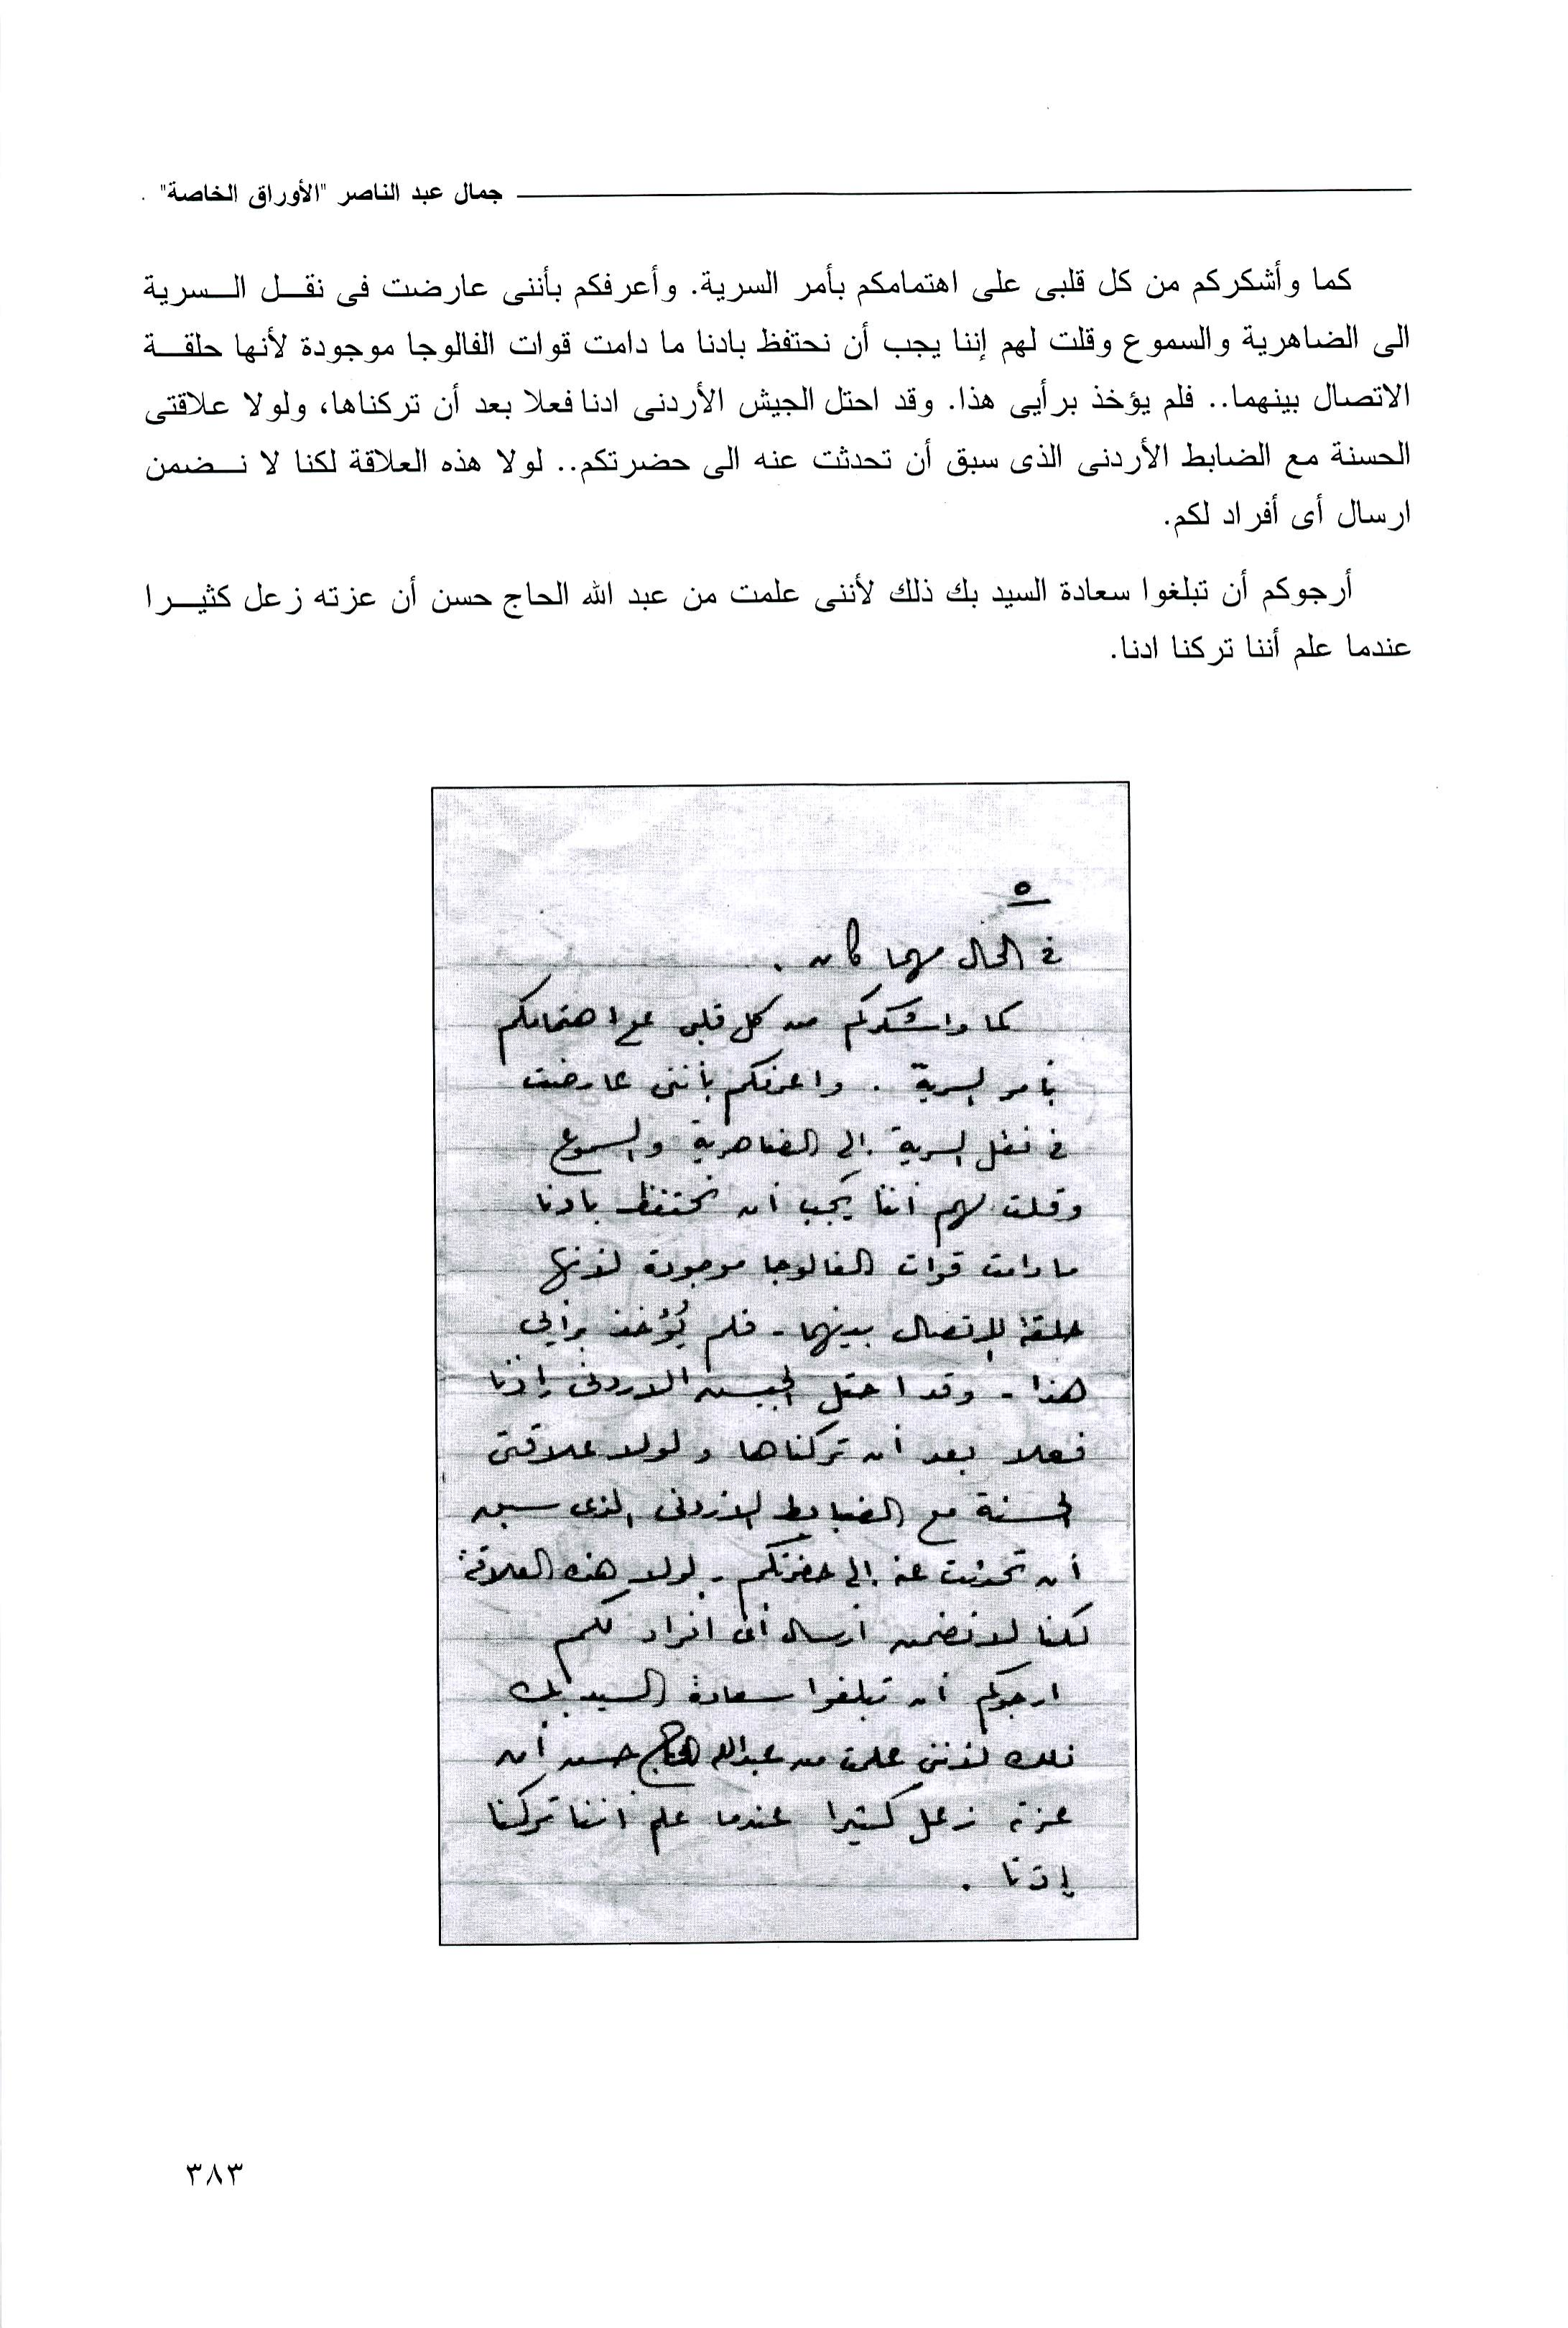 جمال عبد الناصر "الأوراق الخاصة"
كما وأشكركم من كل قلبى على اهتمامكم بأمر السرية. وأعرفكم بأننى عارضت فى نقل السرية
الى الضاهرية والسموع وقلت لهم إننا يجب أن نحتفظ بادنا ما دامت قوات الفالوجا موجودة لأنها حلقة
الاتصال بينهما.. فلم يؤخذ برأيى هذا. وقد احتل الجيش الأردنى ادنا فعلا بعد أن تركناها، ولولا علاقتى
الحسنة مع الضابط الأردنى الذى سبق أن تحدثت عنه الى حضرتكم.. لولا هذه العلاقة لكنا لا نضمن
ارسال أى أفراد لكم.
أرجوكم أن تبلغوا سعادة السيد بك ذلك لأننى علمت من عبد الله الحاج حسن أن عزته زعل كثيرا
عندما علم أننا تركنا ادنا.
٥
فى الحال مهما كان .
كما واشكركم من كل قلبى على اهتمامكم
بأمر السرية . واعرفكم بأننى عارضت
فى نقل السرية الى الضاهرية والسموع
وقلت لهم أننا يجب أن نحتفظ بادنا
ما دامت قوات الفالوجا موجودة لأنها
حلقة الإتصال بينهما - فلم يُؤخذ برأيى
هذا - وقد احتل الجيش الاردنى إذنا
فعلا بعد أن تركناها ولولا علاقتى
الحسنة مع الضابط الاردنى الذى سبق
أن تحدثت عنه إلى حضرتكم - لولا هذه العلاقة
لكنا لا نضمن ارسال أى افراد لكم
ارجوكم أن تبلغوا سعادة السيد بك
ذلك لأننى علمت من عبدالله الحاج حسن أن
عزته زعل كثيرا عندما علم اننا تركنا
إذنا .
٣٨٣